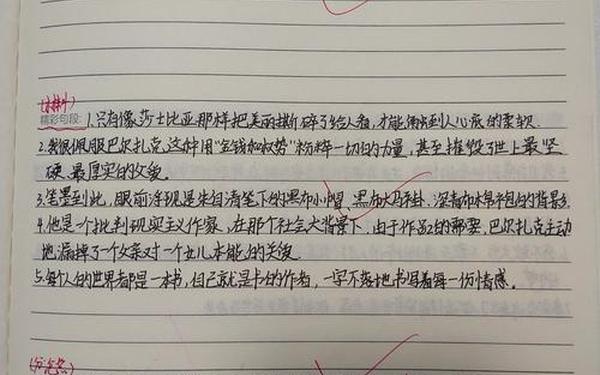 精彩句段：1.只有像莎士比亚那样把美丽撕碎了给人看，才能触到人心底的柔软.
2.我很佩服巴尔扎克这种用“金钱加权势”粉粹一切的力量，甚至摧毁了世上最坚
硬、最厚实的父爱.
3.笔墨到此，眼前浮现是朱自清笔下的黑布小帽、黑布大马卦、深青布棉袍的背影
4.他是一个批判现实主义作家，在那个社会大背景下，由于作品的需要，巴尔扎克主动
地漏掉了一个父亲对一个女儿本能的关爱
5.每个人的世界都是一本书，自己就是书的作者，一字不落地书写着每一份情感.